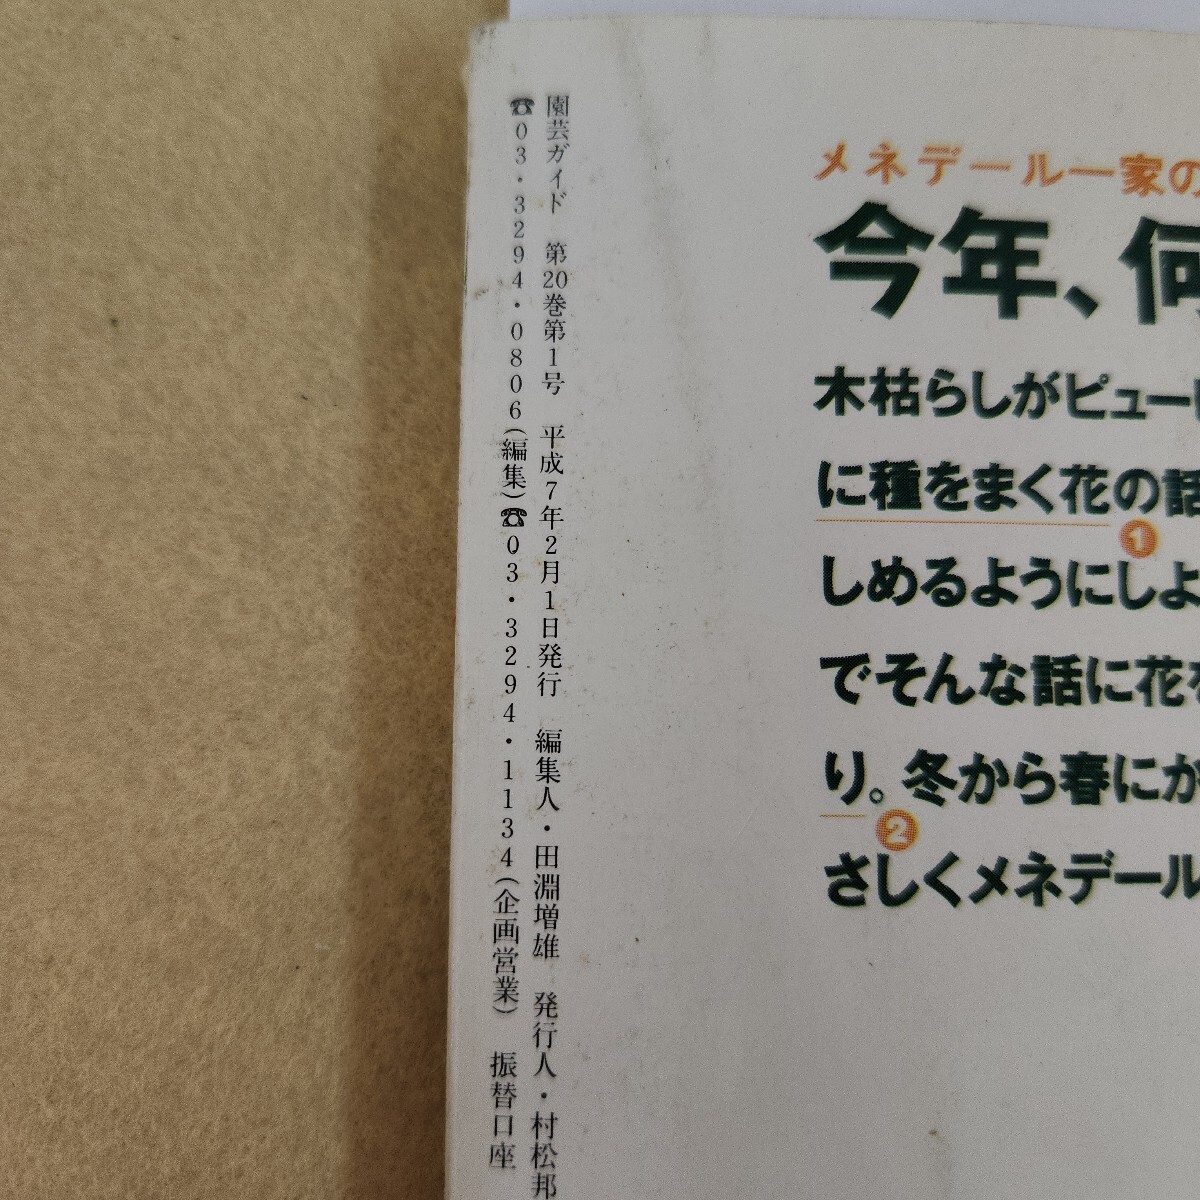 園芸ガイド 第20巻第1号 平成7年2月1日発行 編集人・田淵増雄 発行人・村松邦
☎03・3294・0806(編集)☎03・3294・1134(企画営業) 振替口座
メネデール一家の
今年、何
木枯らしがピュー
に種をまく花の話
①
しめるようにしよ
でそんな話に花を
り。冬から春にか
②
さしくメネデール